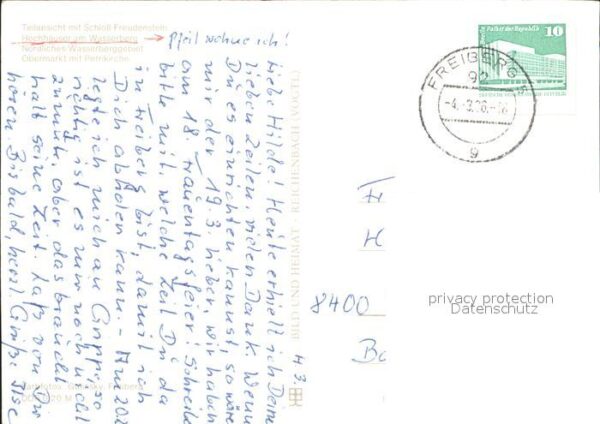 Teilansicht mit Schloß Freudenstein
Hochhäuser am Wasserberg
Nördliches Wasserberggebiet
Obermarkt mit Petrikirche
Pfeil wohne ich!
Liebe Hilde! Heute erhielt ich Deine
lieben Zeilen, vielen Dank. Wenn
Du es einrichten kannst, so wäre
mir der 19.3. lieber, wir haben
am 18. Frauentagsfeier! Schreibe
bitte mit, welche Zeit Du da
in Freiberg bist, damit ich
Dich abholen kann. - Am 20.2.
legte ich mich an Grippe, so
richtig ist es nur noch nicht
zurück, aber das braucht
halt seine Zeit. Laß von Dir
hören. Bis bald, herzl. Grüße Ilse
BILD UND HEIMAT · REICHENBACH (VOGTL)
Palast der Republik
10
FREIBERG
92
-4.-3.86.-18
9
8400
privacy protection
Datenschutz